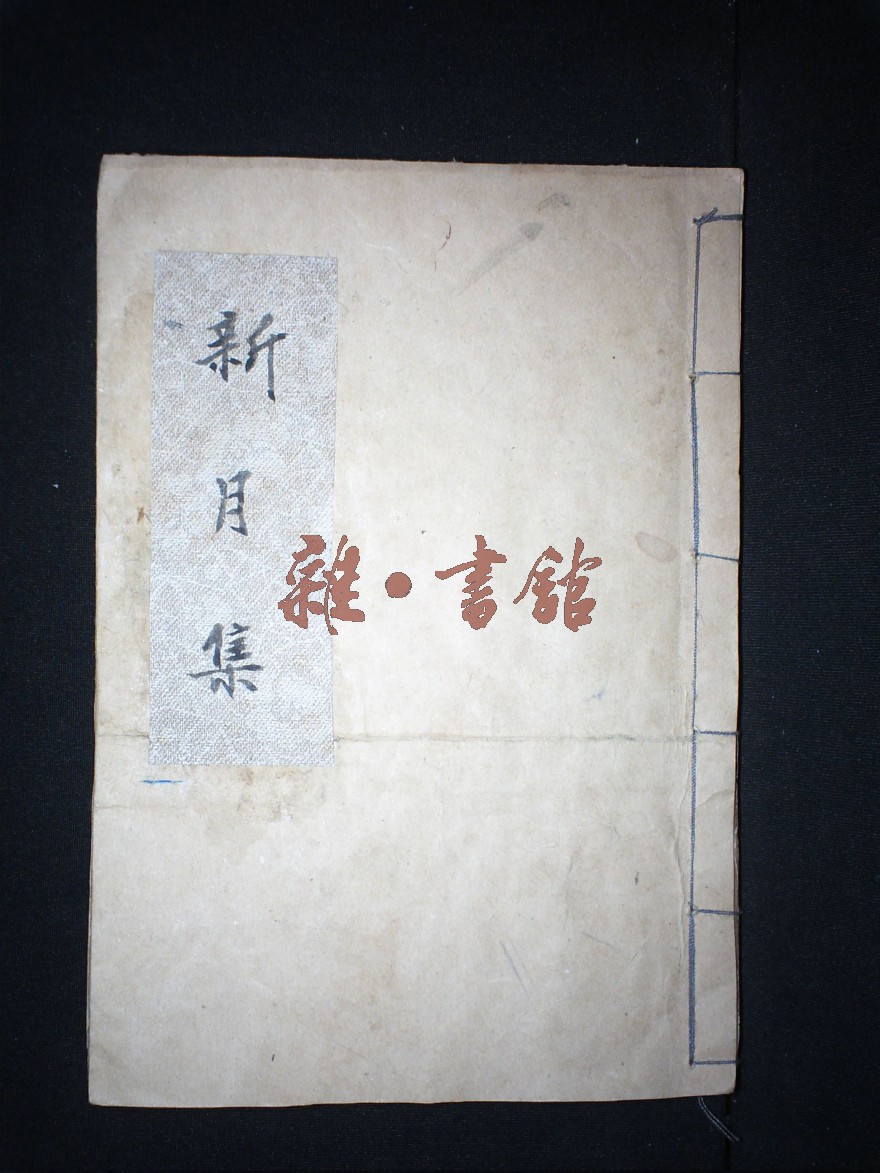 新月集
雜·書館